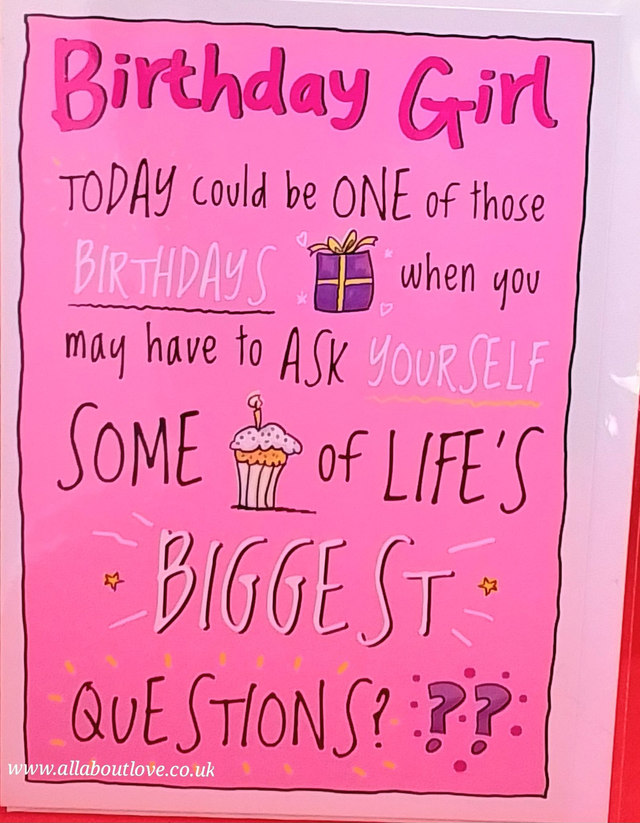 Birthday Girl
TODAY could be ONE of those
BIRTHDAYS when you
may have to ASK YOURSELF
SOME of LIFE'S
BIGGEST
QUESTIONS? ??
www.allaboutlove.co.uk